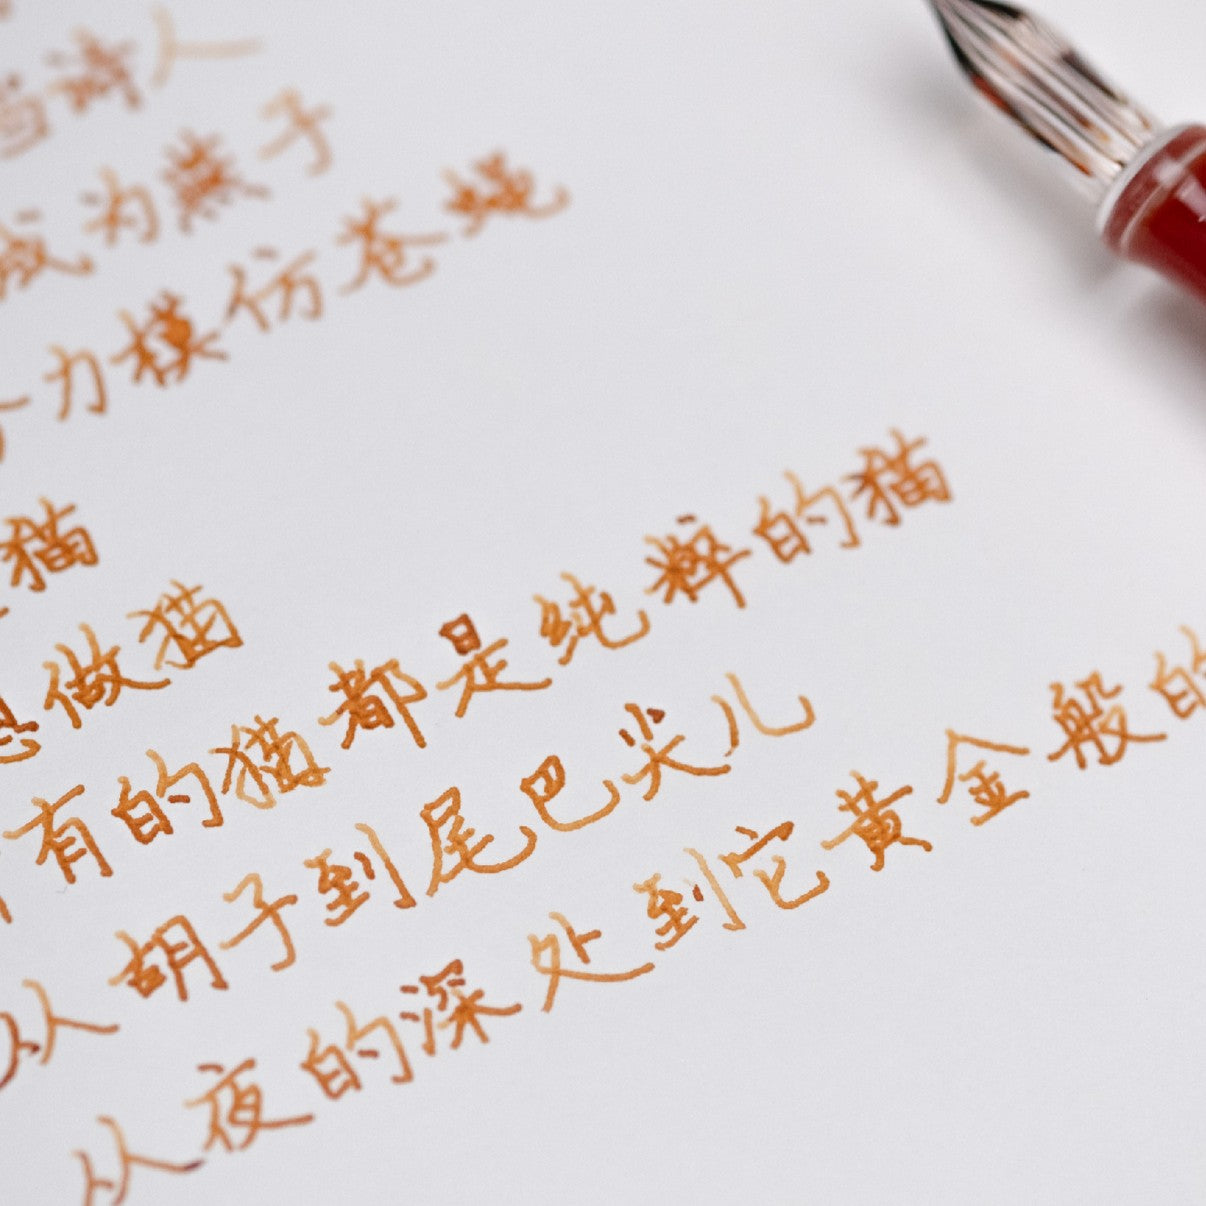 当诗人
成为燕子
力模仿苍蝇
猫
想做猫
有的猫都是纯粹的猫
从胡子到尾巴尖儿
从夜的深处到它黄金般的